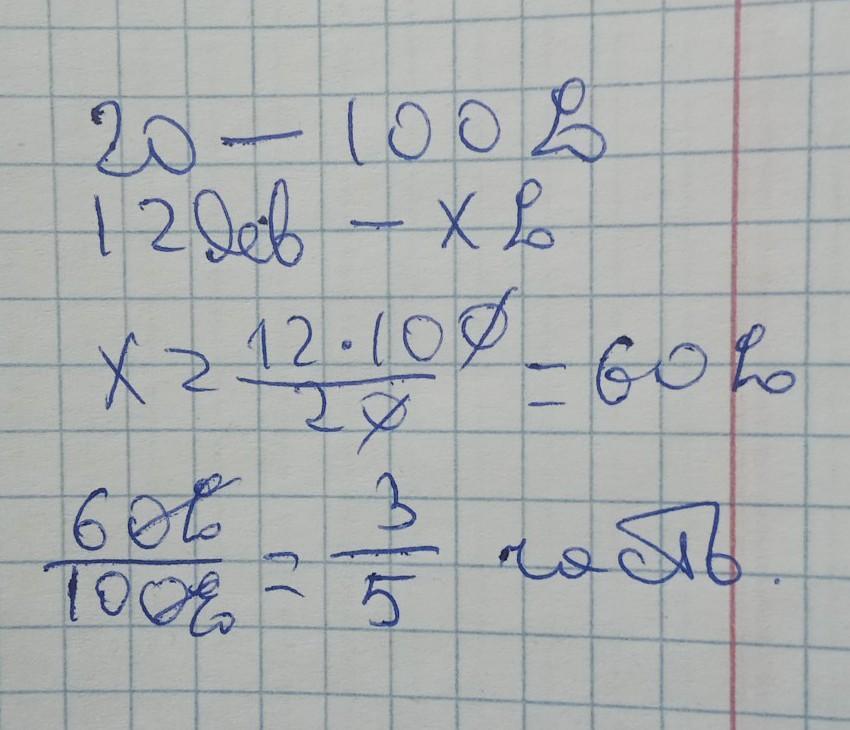 20 — 100 %
12 дев — x %
x = 12 · 100 / 20 = 60 %
60 % / 100 % = 3 / 5 часть.